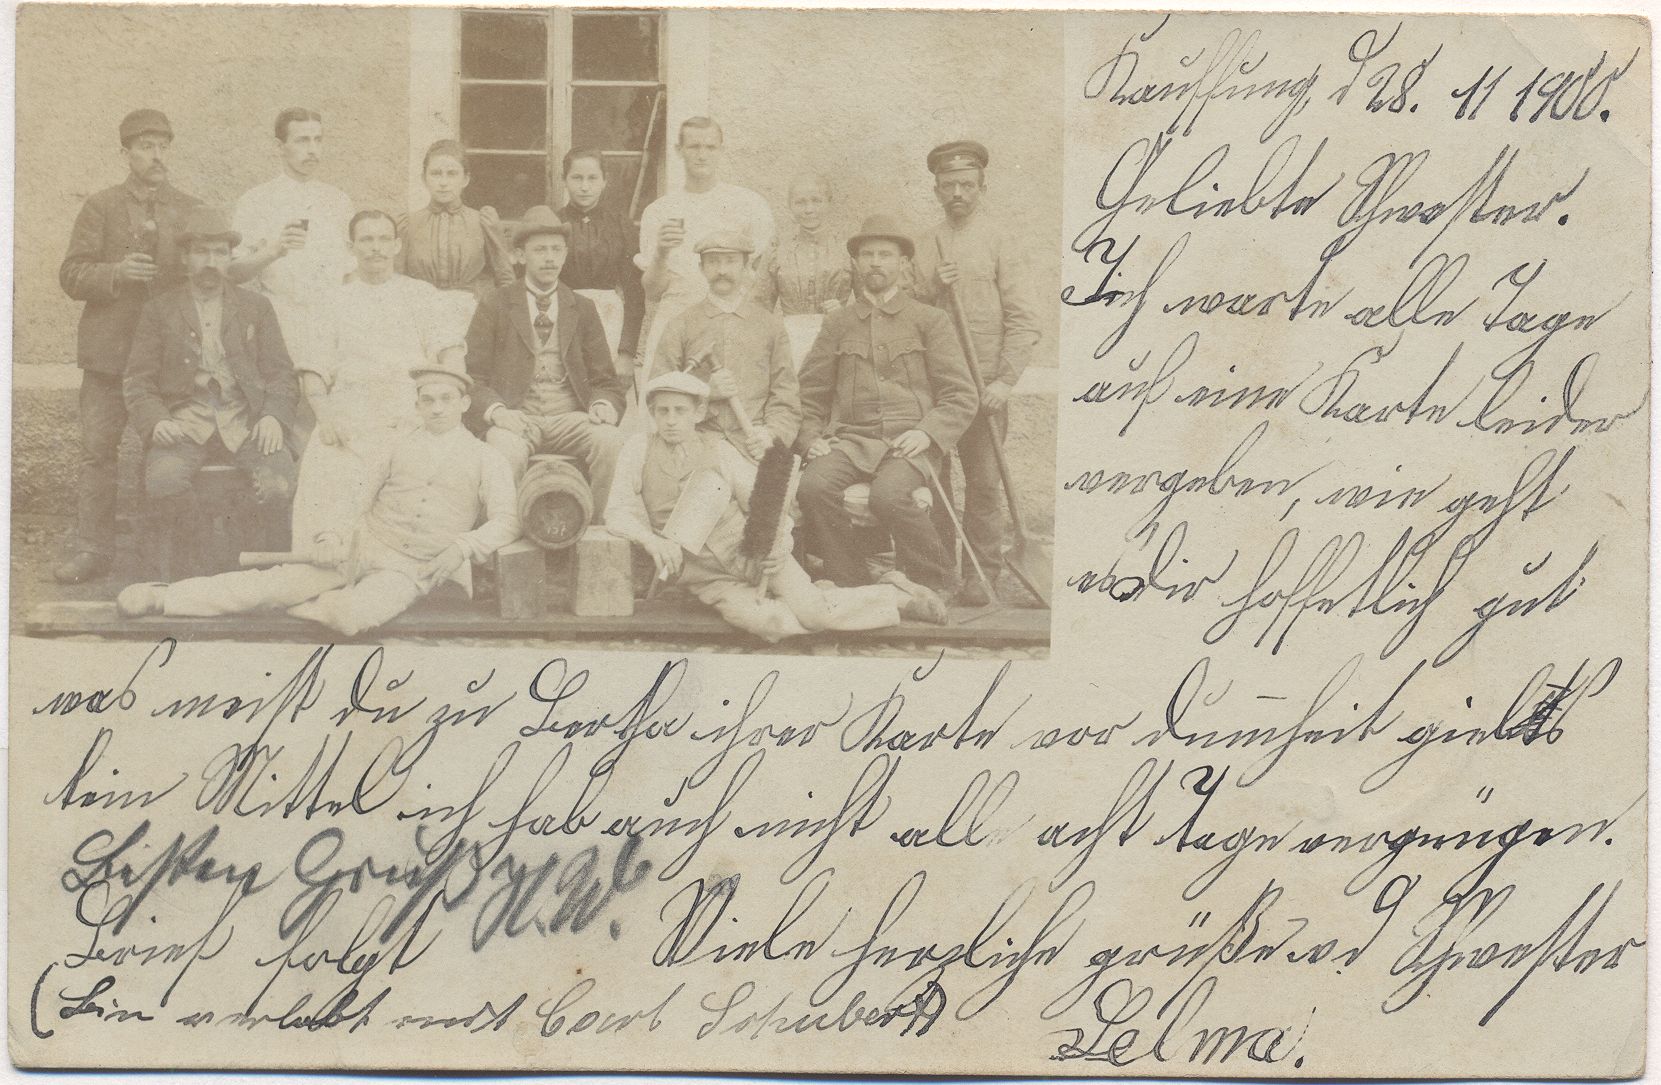 Kauffung, d 28. 11 1900.
Geliebte Schwester.
Ich warte alle Tage
auf eine Karte leider
vergeben, wie geht
es dir hoffetlich gut
was meist du zu Bertha ihrer Karte vor dum̄heit giebts
kein Mittel ich hab auch nicht alle acht Tage vergnügen.
Besten Gruß H. W.
Brief folgt Viele herzliche grüße v d Schwester
(Bin verlobt mit Carl Schubert)
Selma.
157